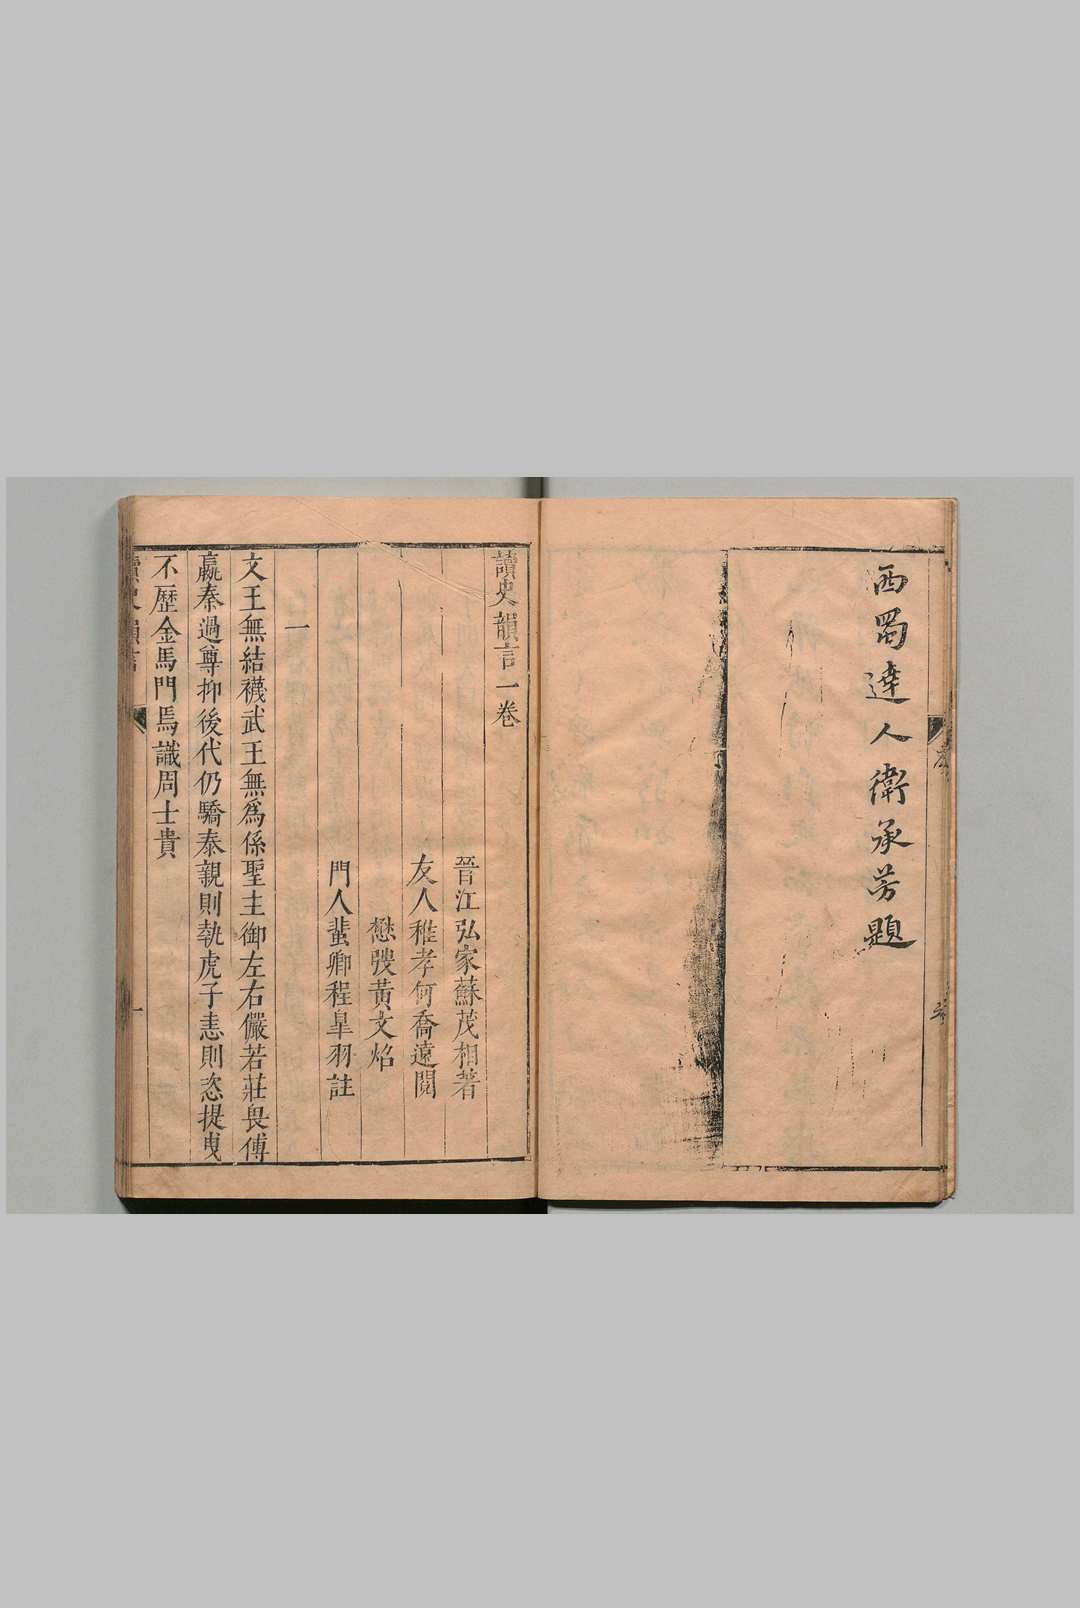 西蜀達人衛承芳題
讀史韻言一卷
晉江弘家蘇茂相著
友人稚孝何喬遠閱
懋彀黃文炤
門人蜚卿程羽註
一
文王無結襪武王無爲係聖主御左右儼若莊畏傅
嬴秦過尊抑後代仍驕泰親則執虎子恚則恣提曳
不歷金馬門焉識周士貴
讀史韻言
一